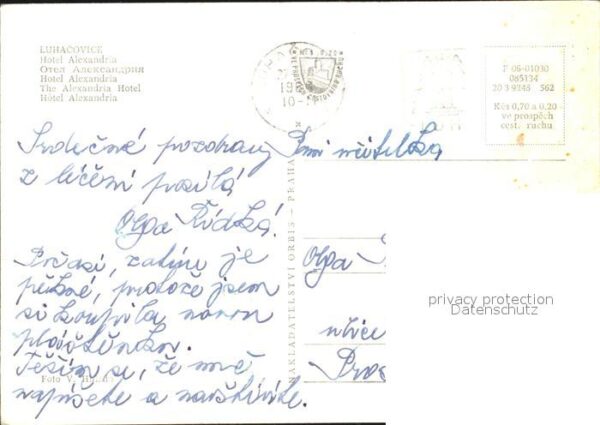 LUHAČOVICE
Hotel Alexandria
Отел Александрия
Hotel Alexandria
The Alexandria Hotel
Hôtel Alexandria
F 05-01030
085134
20 3 9248 562
Kčs 0,70 a 0.20
ve prospěch
cest. ruchu
Srdečné pozdravy
z léčení posílá
Olga Řídká!
Počasí, zatím je
pěkné, protože jsem
si koupila novou
pláštěnku.
Těším se, že mně
napíšete a navštívíte.
Foto V.
NAKLADATELSTVÍ ORBIS - PRAHA
učitelka
Olga
ulice
privacy protection
Datenschutz